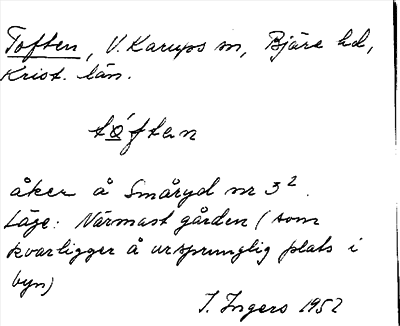 Toften, V. Karups sn, Bjäre hd,
Krist. län.
tǿften
åker å Småryd nr 3².
Läge: Närmast gården (som
kvarligger å ursprunglig plats i
byn)
I. Ingers 1952